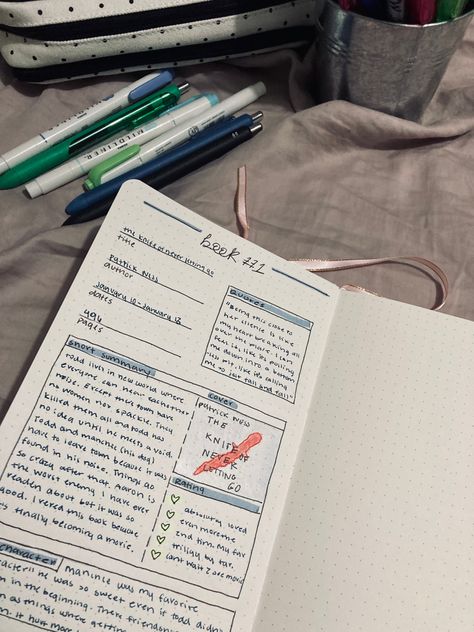 book #1
the knife of never letting go
title
Patrick Ness
author
January 10 - January 18
dates
496
pages
quotes
"Being this close to
her silence is like
my heart breaking all
over the place. I can
feel it, like its pulling
me down into a bottom
less pit, like its calling
me to just fall and fall"
short summary
todd lives in new world where
everyone can hear eachother
noise. Except their town have
no women nor spackle. They
killed them all and todd has
no idea until he meets a void.
Todd and manchie (his dog)
have to leave town because it was
found in his noise. Things go
so crazy after that. Aaron is
the worst enemy I have ever
readen about but it was so
good. I reread this book because
its finally becoming a movie.
cover
PATRICK NESS
THE
KNIFE OF
NEVER
LETTING
GO
rating
absolutely loved
even more the
2nd time. My fav
trilogy by far.
cant wait 2 see movie
character
manchie was my favorite
character!! he was so sweet even if todd didn't
in the beginning. There friendship
as things where getting
it hurt more